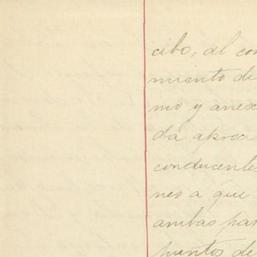 cibo, al con
miento de
mo y anex
da abroa
conducente
nes a que
ambas par
puntos de